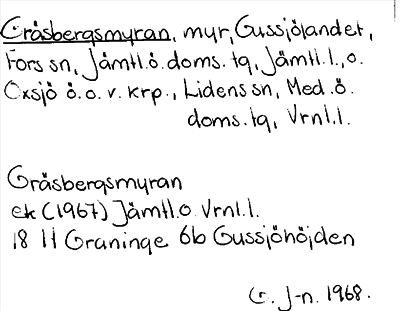 Gråsbergsmyran, myr, Gussjölandet,
Fors sn, Jämtl.ö. doms. tg, Jämtl.l., o.
Oxsjö ö.o.v. krp., Lidens sn, Med.ö.
doms. tg, Vrnl.l.
Gråsbergsmyran
ek (1967) Jämtl.o Vrnl.l.
18 H Graninge 6b Gussjöhöjden
G. J-n. 1968.